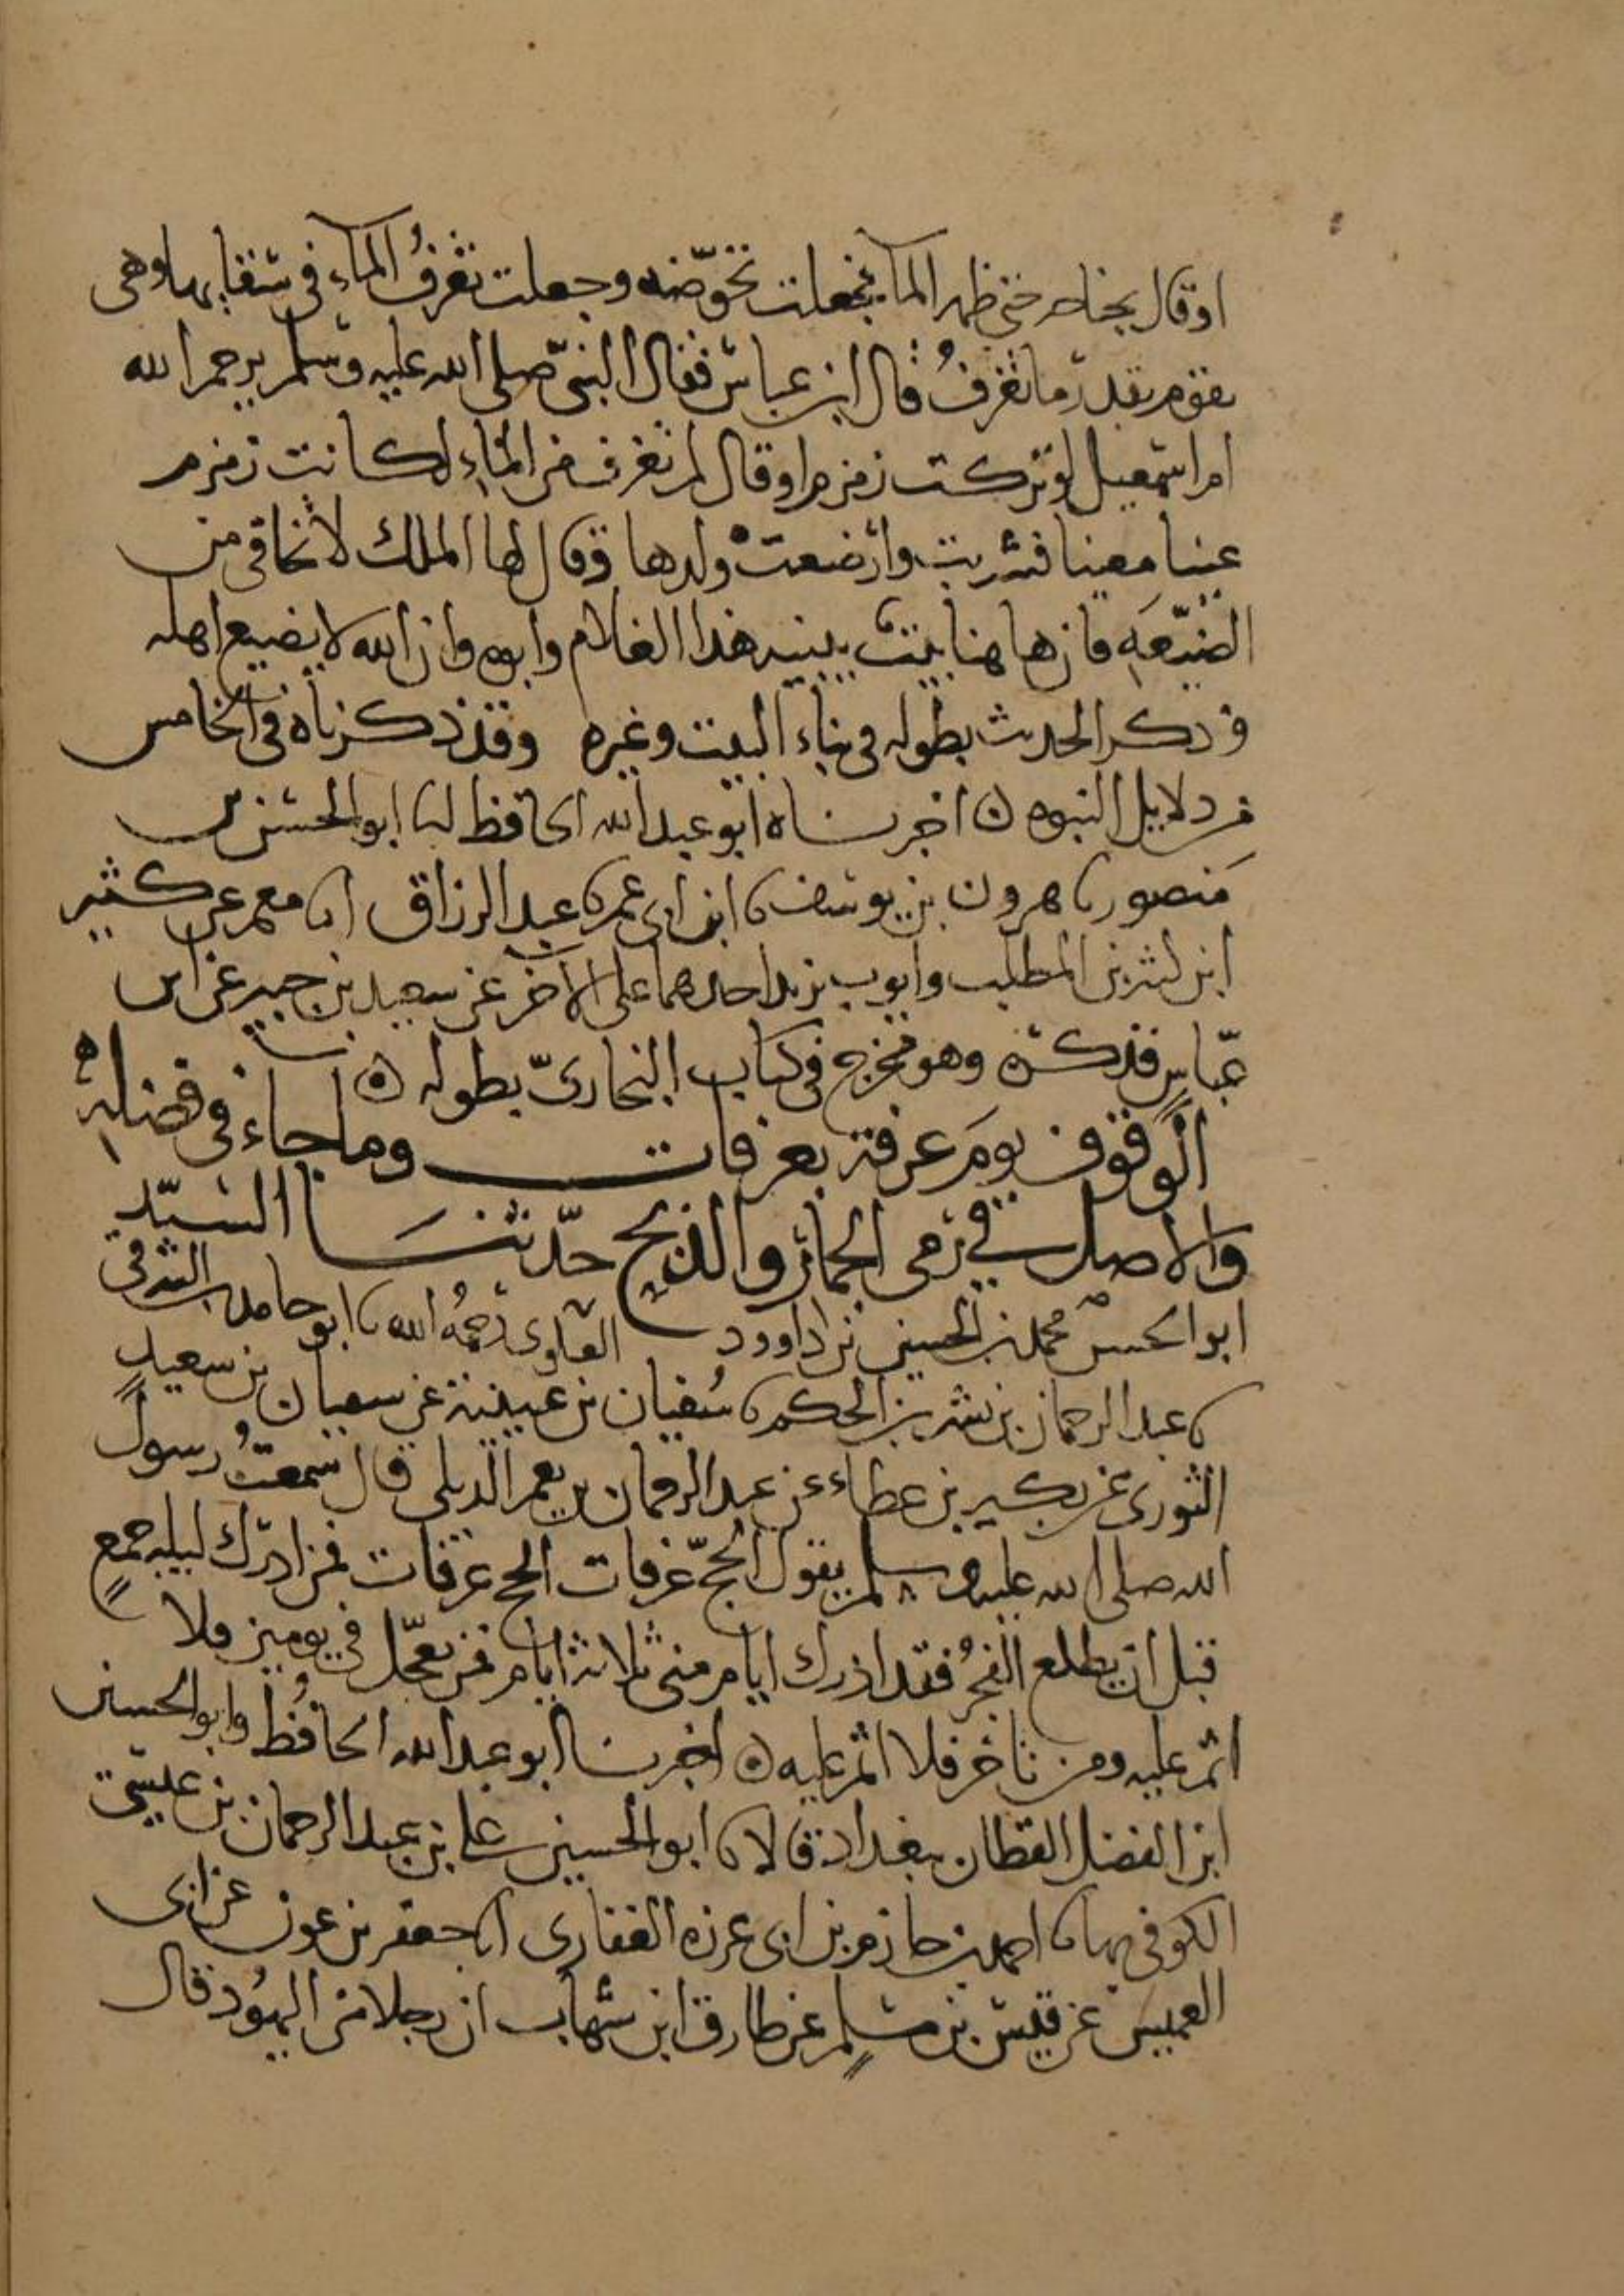 او قال بجناحه حتى ظهر الماء فجعلت تحوّضه وجعلت تغرفُ الماء في سقايها وهي
تفور بقدر ما تغرفُ قال ابن عباس فقال النبيّ صلى الله عليه وسلم يرحم الله
ام اسمعيل لو تركت زمزم او قال لم تغرف من الماء لكانت زمزم
عينا معينا فشربت وارضعت ولدها وقال لها الملك لا تخافي من
الضيعه فان هاهنا بيت يبنيه هذا الغلام وابوه وان الله لا يضيع اهله
وذكر الحديث بطوله في بناء البيت وغيره وقد ذكرناه في الخامس
من دلايل النبوه ه اخبرناه ابو عبد الله الحافظ انا ابو الحسن بن
منصور نا هرون بن يوسف نا ابن ابي عمر نا عبد الرزاق انا معمر عن كثير
ابن كثير بن المطلب وايوب يزيد احدهما على الاخر عن سعيد بن جبير عن ابن
عبّاس فذكره وهو مخرج في كتاب البخاريّ بطوله ه
الوقوف يومَ عرفة بعرفات وما جاء في فضله
والاصل في رمي الجمار والذبح حدّثنا السيّد
ابو الحسن محمد بن الحسين بن داوود العلوي رحمهُ الله نا ابو حامد بن الشرقي
نا عبد الرحمان بن بشر بن الحكم نا سُفيان بن عيينة عن سفيان بن سعيد
الثوري عن بكير بن عطاء عن عبد الرحمان بن يعمر الديلي قال سمعتُ رسول
الله صلى الله عليه وسلم يقول الحجّ عرفات الحج عرفات فمن ادرك ليله جمعٍ
قبل ان يطلع الفجرُ فقد ادرك ايام منى ثلاثة ايام فمن تعجّل في يومين فلا
اثم عليه ومن تاخر فلا اثم عليه ه اخبرنا ابو عبد الله الحافظُ وابو الحسين
ابن الفضل القطان ببغداد قالا نا ابو الحسين علي بن عبد الرحمان بن عيسى
الكوفي بها نا احمد بن حازم بن ابي غرزه الغفاري انا جعفر بن عون عن ابي
العميس عن قيس بن مسلم عن طارق ابن شهاب ان رجلا من اليهُود قال